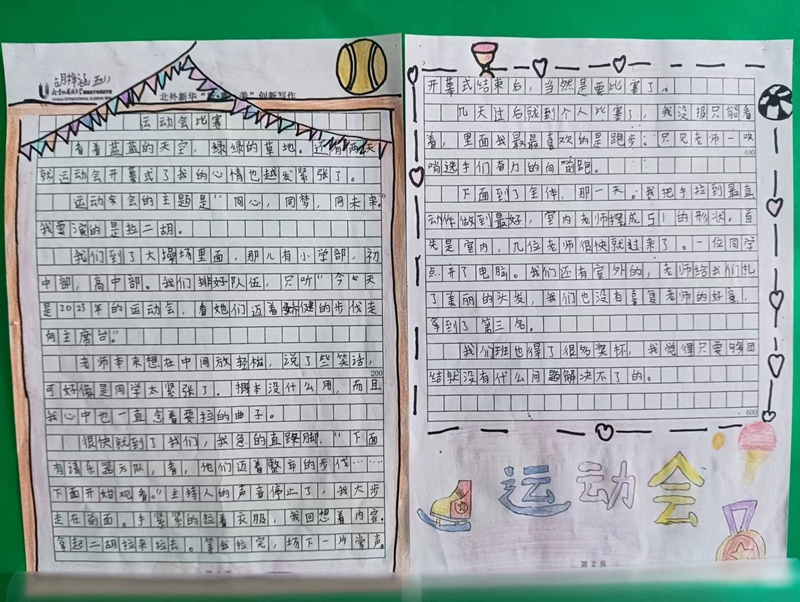 胡梓涵 五11
北外新华"真·善·美"创新写作
运动会比赛
看看蓝蓝的天空，绿绿的草地。还有两天
就运动会开幕式了我的心情也越发紧张了。
运动会的主题是"同心，同梦，同未来。"
我要演的是拉二胡。
我们到了大操场里面，那儿有小学部，初
中部，高中部。我们排好队伍，只听"今天
是2023年的运动会，看她们迈着矫健的步伐走
向主席台。"
老师本来想在中间放轻松，说了些笑话，
可好像是同学太紧张了。根本没什么用，而且
我心中也一直念着要拉的曲子。
200
很快就到了我们，我急的直跺脚，"下面
有请乐器方队，看，他们迈着整齐的步伐……
下面开始观看。"主持人的声音停止了，我大步
走在前面。手紧紧的拉着衣服，我回想着内容。
拿起二胡拉来拉去。等我拉完，场下一片掌声。
开幕式结束后，当然是要比赛了。
几天过后就到个人比赛了，我没报只能看
着，里面我最最喜欢的是跑步：只见老师一吹
400
哨选手们奋力的向前跑。
下面到了集体，那一天。我把手拉到最直
动作做到最好，室内老师摆成51的形状。首
先是室内，几位老师很快就过来了。一位同学
点开了电脑。我们还有室外的，老师给我们扎
了美丽的头发，我们也没有辜负老师的好意，
拿到了第三名。
我们班也得了很多奖杯，我觉得只要够团
结就没有什么问题解决不了的。
600
运动会
第2页